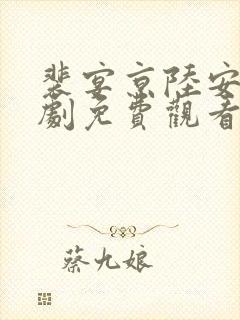 裴宴京陸安
劇免費觀看
蔡九娘